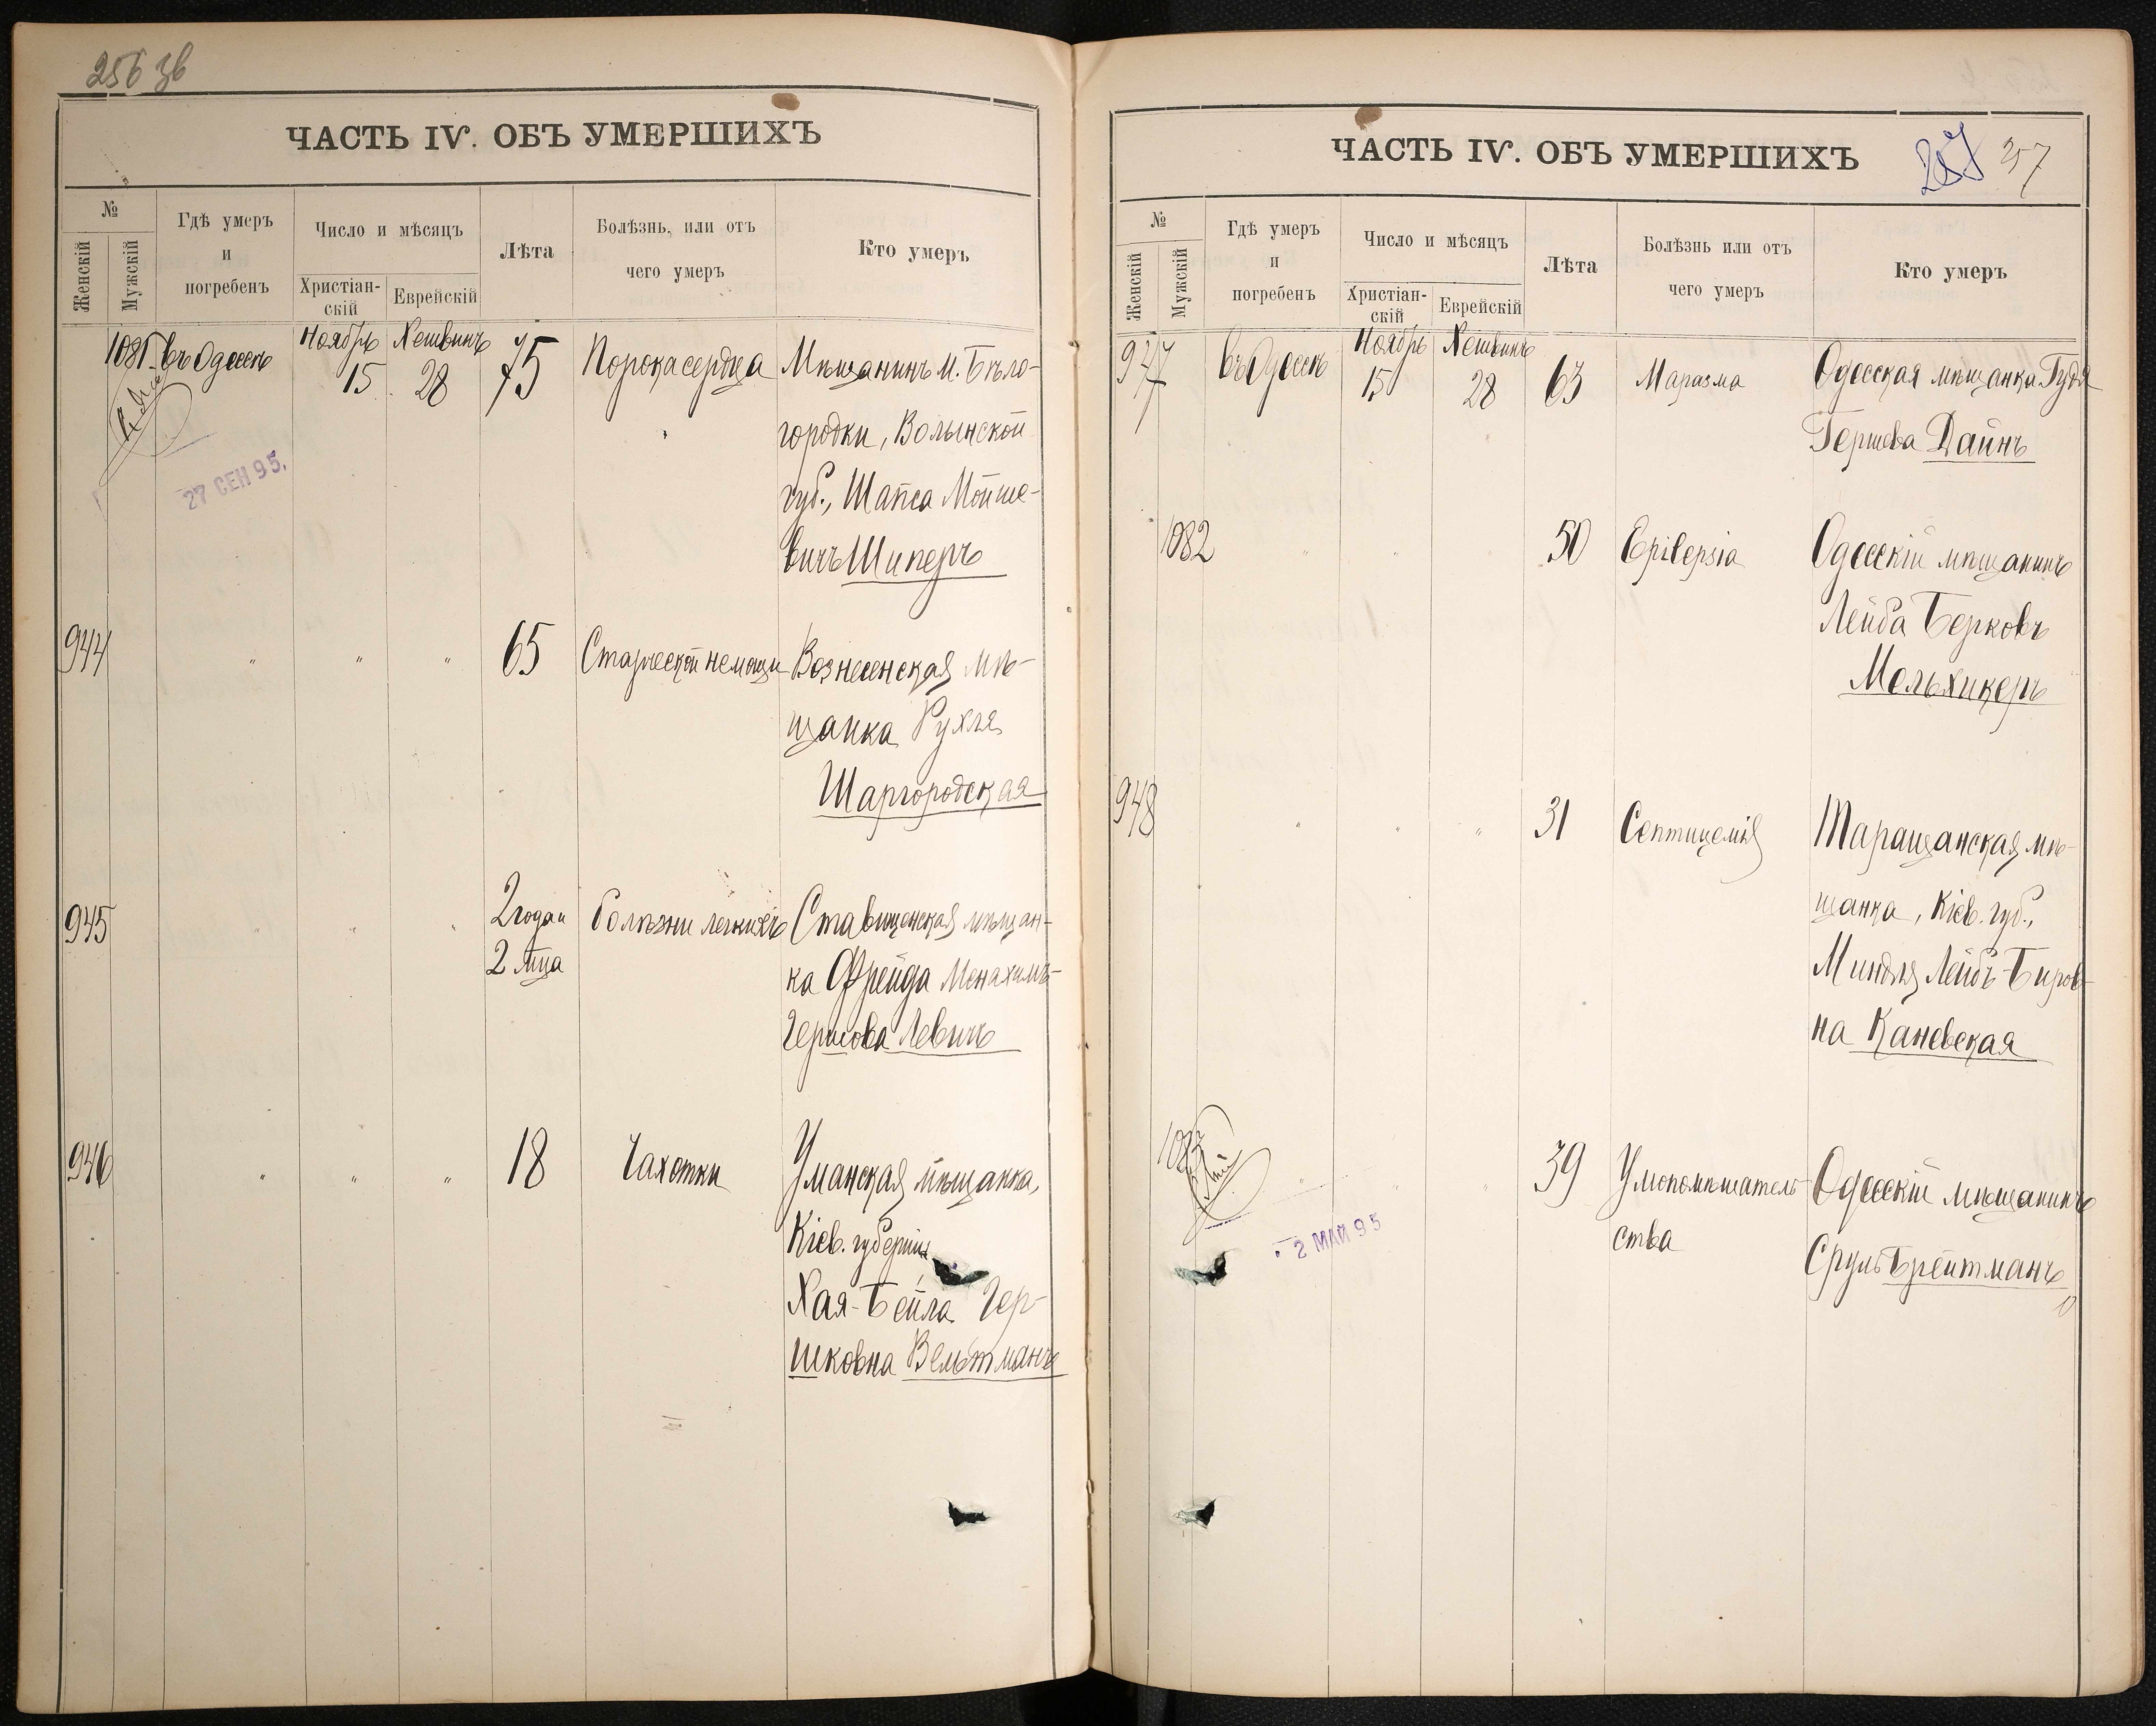 256 зв
ЧАСТЬ IV. ОБЪ УМЕРШИХЪ
№
Женскій
Мужскій
Гдѣ умеръ
и
погребенъ
Число и мѣсяцъ
Христіан-
скій
Еврейскій
Лѣта
Болѣзнь, или отъ
чего умеръ
Кто умеръ
1081 въ Одессѣ Ноябрь 15 Хешвинъ 28 75 Порока сердца Мѣщанинъ м. Бѣло-
городки, Волынской
губ., Шапса Мойше-
вичъ Шиперъ
27 СЕН 95.
944 " " " 65 Старческой немощи Вознесенская мѣ-
щанка Рухля
Шаргородская
945 " " " 2 года и Болѣзни легкихъ Ставищенская мѣщан-
2 мца ка Фрейда Менахимъ-
Гершова Левичъ
946 " " " 18 Чахотки Уманская мѣщанка,
Кіев. губерніи
Хая-Бейла Гер-
шковна Вельтманъ
ЧАСТЬ IV. ОБЪ УМЕРШИХЪ
257 257
№
Женскій
Мужскій
Гдѣ умеръ
и
погребенъ
Число и мѣсяцъ
Христіан-
скій
Еврейскій
Лѣта
Болѣзнь или отъ
чего умеръ
Кто умеръ
947 въ Одессѣ Ноябрь 15 Хешвинъ 28 63 Маразма Одесская мѣщанка Гудя
Гершева Дайнъ
1082 " " " 50 Epilepsia Одесскій мѣщанинъ
Лейба Берковъ
Мельхикеръ
948 " " " 31 Септицемія Таращанская мѣ-
щанка, Кіев. губ.,
Миндля Лейбъ-Биров-
на Каневская
1083 " " " 39 Умопомѣшатель- Одесскій мѣщанинъ
ства Сруль Брейтманъ
2 МАЙ 95